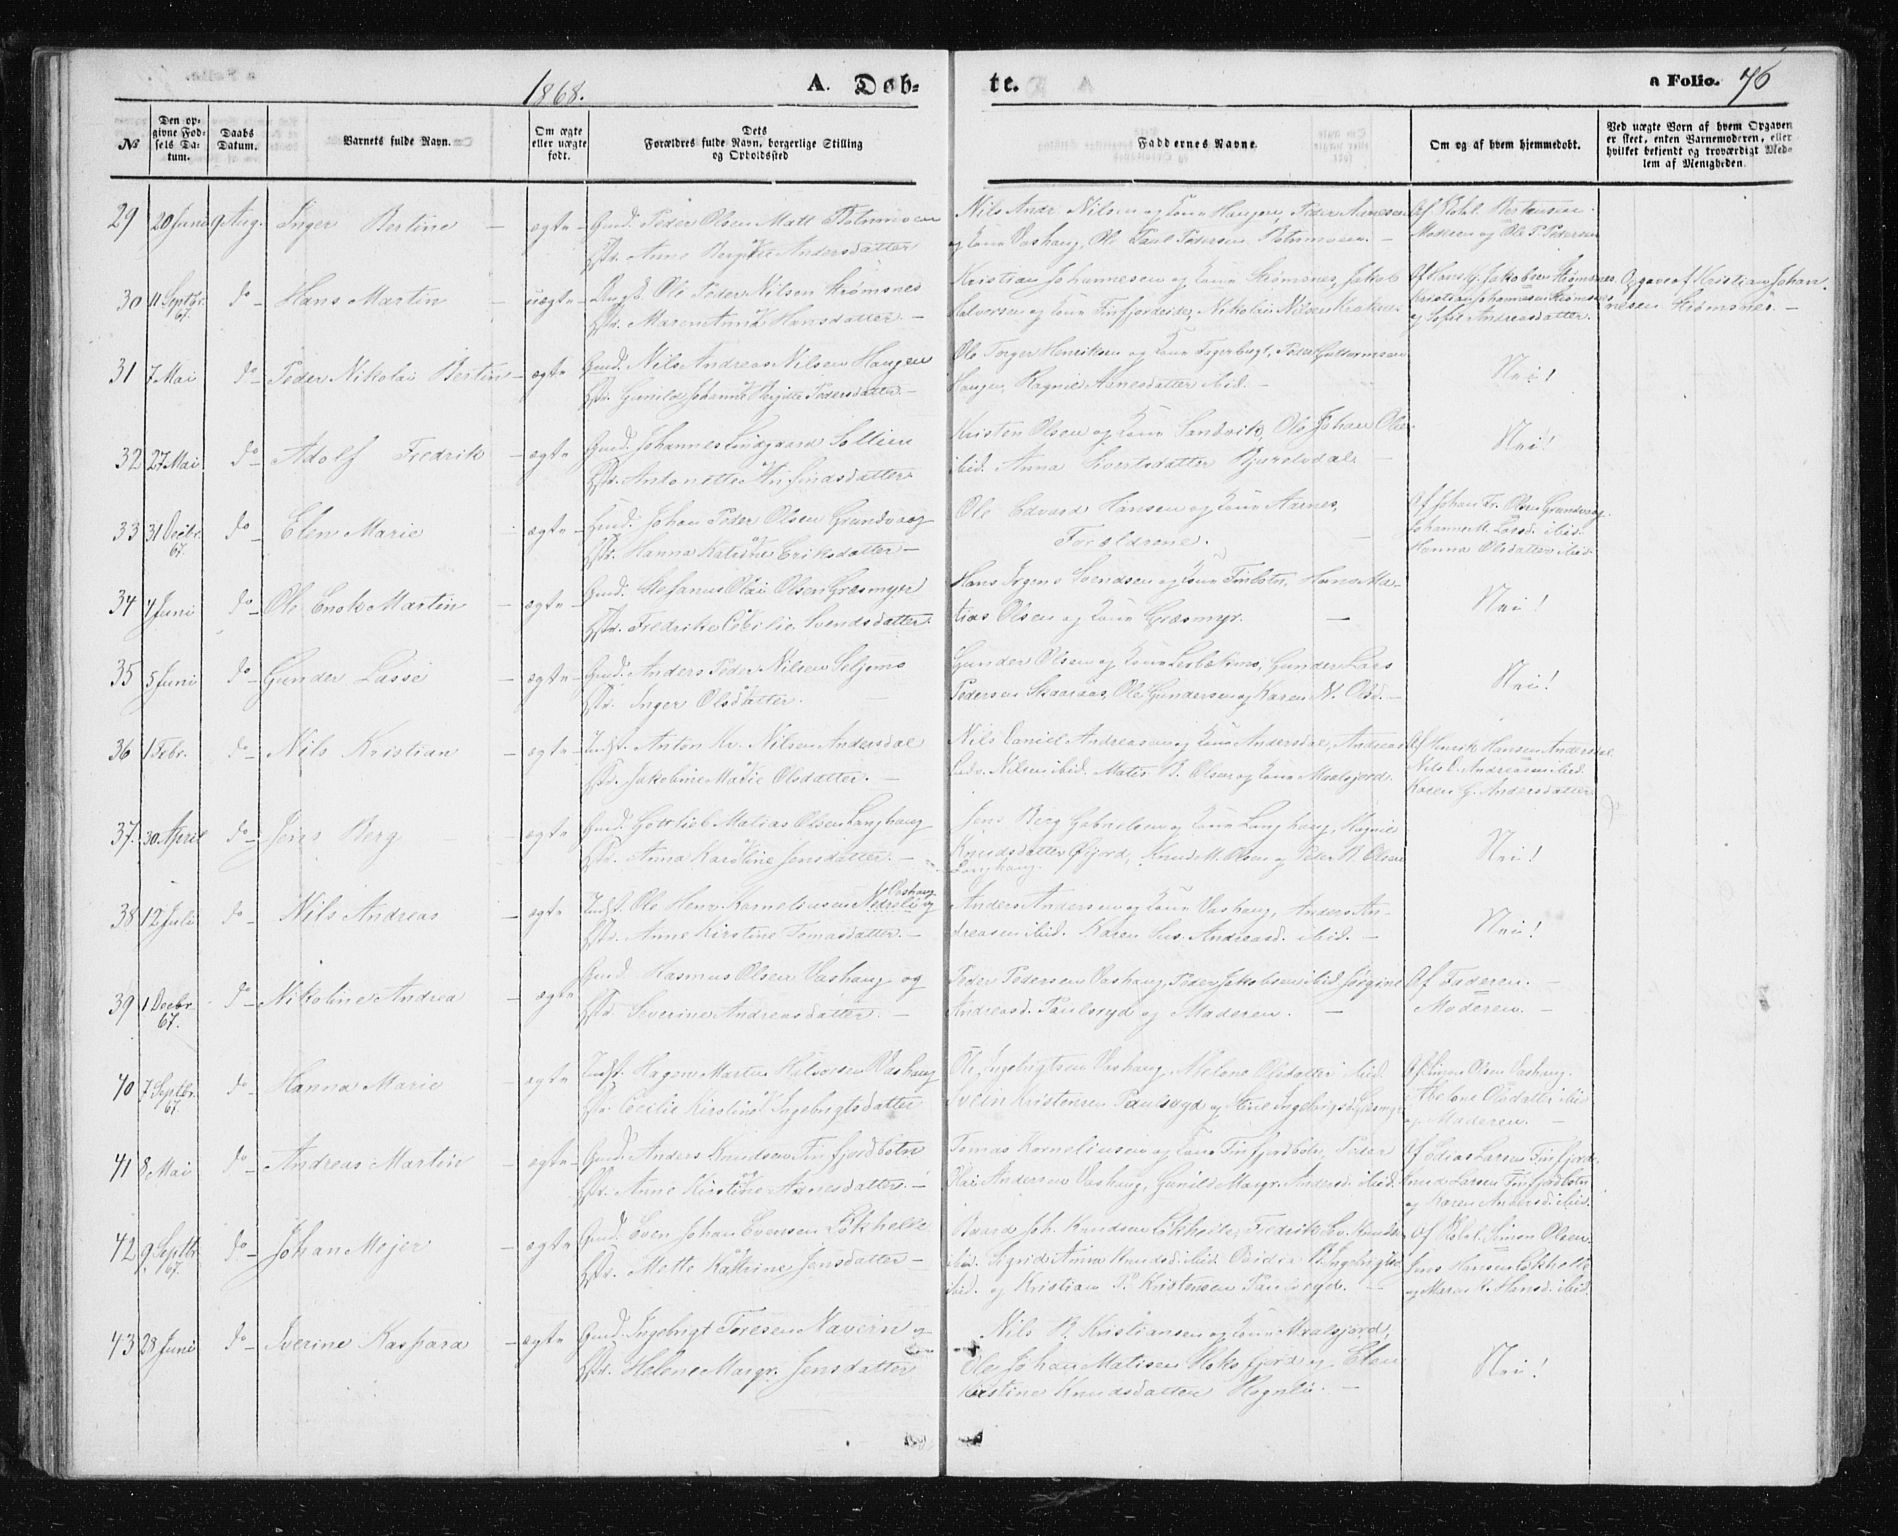 1868.
A. Døb-
te.
a Folio. 76
No
Den op-
givne Fød-
sels Da-
tum.
Daabs
Datum.
Barnets fulde Navn.
Om ægte
eller uægte
født.
Dets
Forældres fulde Navn, borgerlige Stilling
og Opholdsted
Faddernes Navne.
Om og af hvem hjemmedøbt.
Ved uægte Born af hvem Opgaven
er skeet, enten Barnemoderen, eller
hvilket bekjendt og troværdigt Med-
lem af Menigheden.
29 20 Juni 9 Aug. Inger Bertine ægte Gmd. Peder Olsen Moen
Anne Birgitte Andersdatter
Nils Andr Nilsen og Kone Haugen, Peder Arnesen
og Kone Vashaug, Ole Paul Pedersen
Moderen og Ole P. Pedersen
30 11 Septbr. 67. do Hans Martin uægte Ungk. Ole Peder Nilsen Strømsnes
Maren Anna Hansdatter
Kristian Johannesen og Kone Strømsnes, Jakob
Halvorsen og Kone Finfjordeidet, Nikolai Nilsen
Af Hans G. Jakobsen Strømsnes
Kristian Johannesen Strømsnes
og Sofie Andreasdatter.
Opgave af Kristian Johan-
nesen Strømsnes.
31 7 Mai do Peder Nikolai Bertin ægte Gmd. Nils Andreas Nilsen Haugen
Gunild Johanna Birgitte Pedersdatter
Ole Torger Henriksen og Kone Fagerbugt, Peder Guttormsen
Haugen, Ragnil Arnesdatter ibid.
Nei!
32 27 Mai do Adolf Fredrik ægte Gmd. Johannes Lindgaard Sollien
Antonette Anfindsdatter
Kristen Olsen og Kone Sandvik, Ole Johan Olsen
ibid. Anna
Nei!
33 31 Decbr. 67 do Elen Marie ægte Gmd. Johan Peder Olsen Grundvaag
Hanna Katrine Eriksdatter
Ole Edvard Hansen og Kone Aarnes,
Forældrene.
Af Johan Fr. Olsen Grundvaag
Johanne M. Larsd. ibid.
Hanna Olsdatter ibid.
34 4 Juni do Ole Enok Martin ægte Gmd. Stefanus Olai Olsen Græsmyr
Fredrikke Cecilie Svendsdatter.
Hans Jrgens Svendsen og Kone Finbotn, Hans Ma-
tias Olsen og Kone Græsmyr.
Nei!
35 5 Juni do Gunder Lasse ægte Gmd. Anders Peder Nilsen Seljemo
Inger Olsdatter.
Gunder Olsen og Kone, Gunder Lars
Pedersen, Ole Gundersen og Karen N. Olsd.
Nei!
36 1 Febr. do Nils Kristian ægte Indst. Anton Kr. Nilsen Andersdal
Jakobine Marie Olsdatter.
Nils Daniel Andreasen og Kone Andersdal, Andreas
Nilsen ibid. Mates B. Olsen og Kone Maalsjord.
Af Henrik Hansen Andersdal
Nils D. Andreasen ibid.
Karen G. Andersdatter
37. 30. April do Jens Berg ægte Gmd. Gotlieb Matias Olsen Langhaug
Anna Karoline Jensdatter.
Jens Berg Gabrielsen og Kone Langhaug, Ragnil
Knudsdatter Øfjord, Knud M. Olsen og Peder B. Olsen
Langhaug.
Nei!
38 12 Juli do Nils Andreas ægte Indst. Ole Henr. Korneliussen Nedreli Vashaug
Anne Kirstine Tomasdatter.
Anders Andersen og Kone Vashaug, Anders An-
dreasen ibid. Karen Sus. Andreasd. ibid.
Nei!
39 1 Decbr 67. do Nikoline Andrea ægte Gmd. Rasmus Olsen Vashaug og
Severine Andreasdatter.
Peder Pedersen Vashaug, Peder Jakobsen ibid Jørgine
Andreasd. Paulsryd og Moderen.
Af Faderen.
Moderen.
40 7 Septbr. 67. do Hanna Marie ægte Indst. Hagen Martin Halvorsen Vashaug
Cecilie Kirstine Ingebrigtsdatter
Ole Ingebrigtsen Vashaug, Abelone Olsdatter ibid.
Svein Kristensen Paulsryd og Stine Ingebrigtsd. Græsmyr
Af Simon Olsen Vashaug.
Abelone Olsdatter ibid
og Moderen.
41 8 Mai do Andreas Martin ægte Gmd. Anders Knudsen Finfjordbotn
Anne Kirstine Arnesdatter.
Tomas Korneliussen og Kone Finfjordbotn, Peder
Olai Andersen Vashaug, Gunild Margr. Andersd. ibid.
Af Edias Larsen Finfjord.
Knud Larsen Finfjordbotn
og Karen Andersd. ibid.
42 9 Septbr 67. do Johan Mejer ægte Gmd. Even Johan Evensen Løkhelle
Mette Katrine Jensdatter
Baard Joh. Knudsen Løkhelle, Fredrik Ev. Knudsen
ibid. Sigrid Anna Knudsd. ibid.
ibid. og Kristian P. Kristensen Paulsryd.
Af Simon Olsen.
Jens Hansen Løkhelle
og Maren H. Hansd. ibid.
43 28 Juni do Iverine Kaspara ægte Gmd. Ingebrigt Toresen Navern og
Helene Margr. Jensdatter
Nils B. Kristiansen og Kone Maalsjord,
Ole Johan Matisen og Elen
Kirstine Knudsdatter Rognli.
Nei!